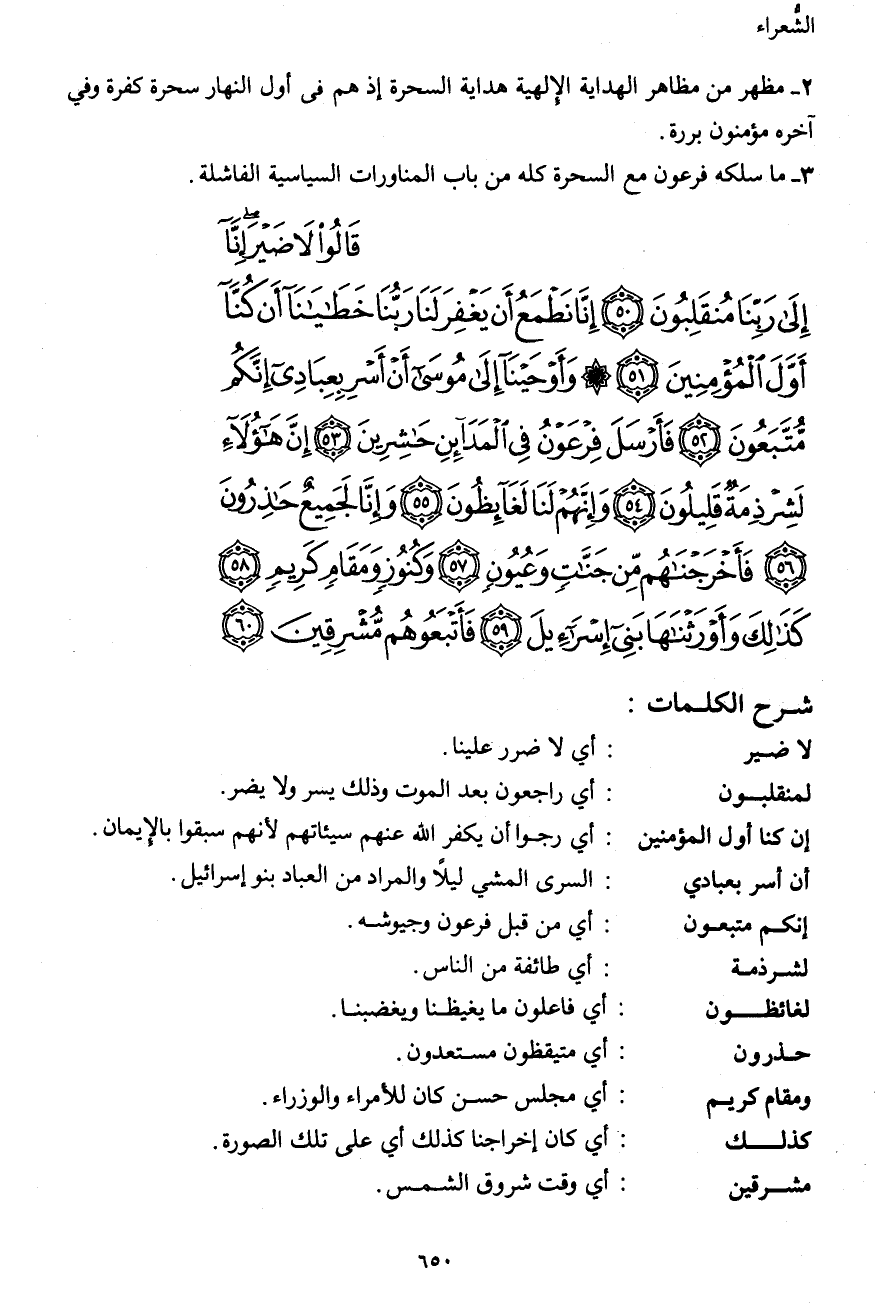 الشُّعراء
٢ـ مظهر من مظاهر الهداية الإلهية هداية السحرة إذ هم فى أول النهار سحرة كفرة وفي
آخره مؤمنون بررة.
٣ـ ما سلكه فرعون مع السحرة كله من باب المناورات السياسية الفاشلة.
قَالُوا۟ لَا ضَيْرَ ۖ إِنَّآ
إِلَىٰ رَبِّنَا مُنقَلِبُونَ ٥٠ إِنَّا نَطْمَعُ أَن يَغْفِرَ لَنَا رَبُّنَا خَطَـٰيَـٰنَآ أَن كُنَّآ
أَوَّلَ ٱلْمُؤْمِنِينَ ٥١ ۞ وَأَوْحَيْنَآ إِلَىٰ مُوسَىٰٓ أَنْ أَسْرِ بِعِبَادِىٓ إِنَّكُم
مُّتَّبَعُونَ ٥٢ فَأَرْسَلَ فِرْعَوْنُ فِى ٱلْمَدَآئِنِ حَـٰشِرِينَ ٥٣ إِنَّ هَـٰٓؤُلَآءِ
لَشِرْذِمَةٌ قَلِيلُونَ ٥٤ وَإِنَّهُمْ لَنَا لَغَآئِظُونَ ٥٥ وَإِنَّا لَجَمِيعٌ حَـٰذِرُونَ
٥٦ فَأَخْرَجْنَـٰهُم مِّن جَنَّـٰتٍ وَعُيُونٍ ٥٧ وَكُنُوزٍ وَمَقَامٍ كَرِيمٍ ٥٨
كَذَٰلِكَ وَأَوْرَثْنَـٰهَا بَنِىٓ إِسْرَٰٓءِيلَ ٥٩ فَأَتْبَعُوهُم مُّشْرِقِينَ ٦٠
شرح الكلمات :
لا ضير : أي لا ضرر علينا.
لمنقلبون : أي راجعون بعد الموت وذلك يسر ولا يضر.
إن كنا أول المؤمنين : أي رجوا أن يكفر الله عنهم سيئاتهم لأنهم سبقوا بالإيمان.
أن أسر بعبادي : السرى المشي ليلًا والمراد من العباد بنو إسرائيل.
إنكم متبعون : أي من قبل فرعون وجيوشه.
لشرذمة : أي طائفة من الناس.
لغائظون : أي فاعلون ما يغيظنا ويغضبنا.
حذرون : أي متيقظون مستعدون.
ومقام كريم : أي مجلس حسن كان للأمراء والوزراء.
كذلك : أي كان إخراجنا كذلك أي على تلك الصورة.
مشرقين : أي وقت شروق الشمس.
٦٥٠